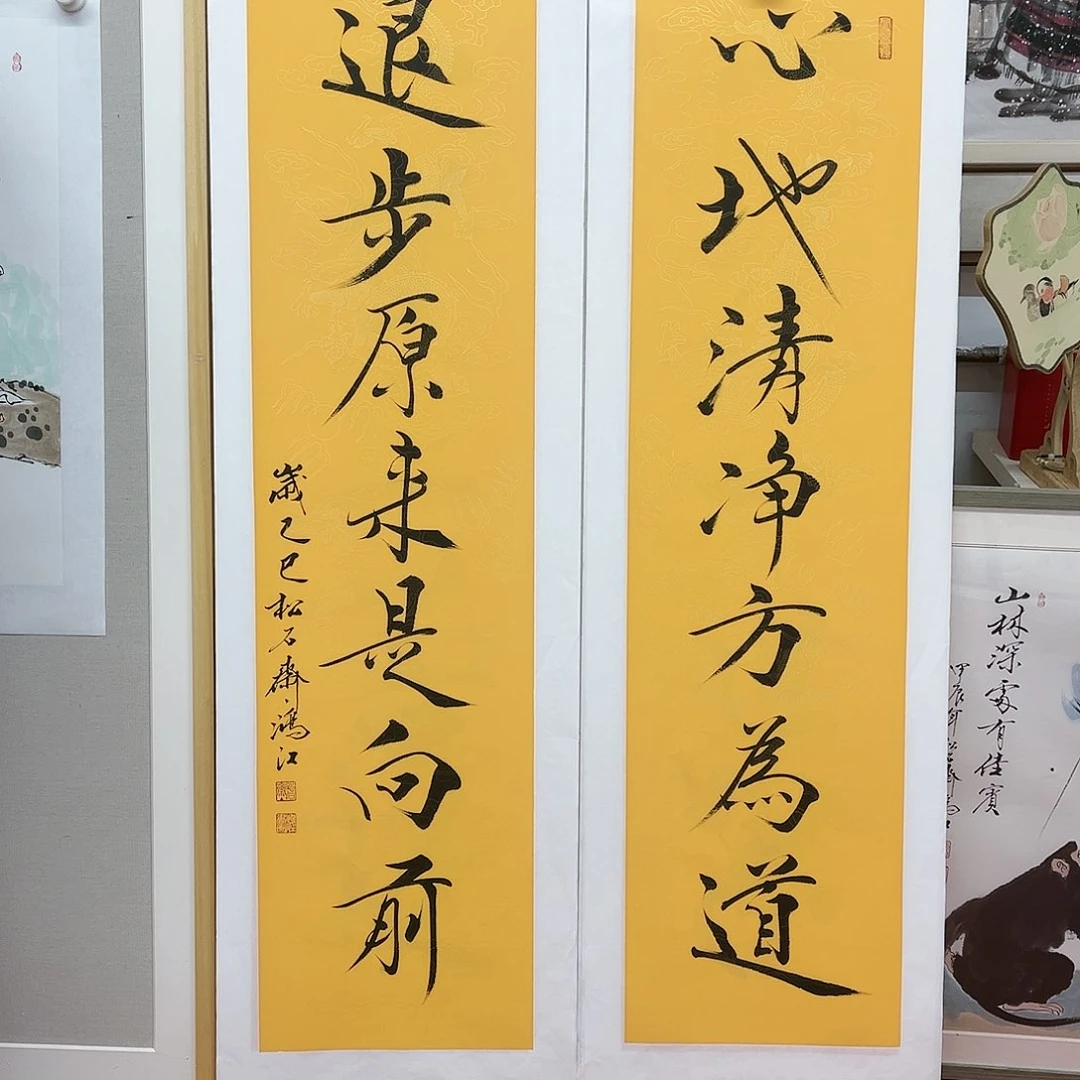 心地清净方為道
退步原来是向前
歲乙巳松石齋鴻江
山林深處有佳賓